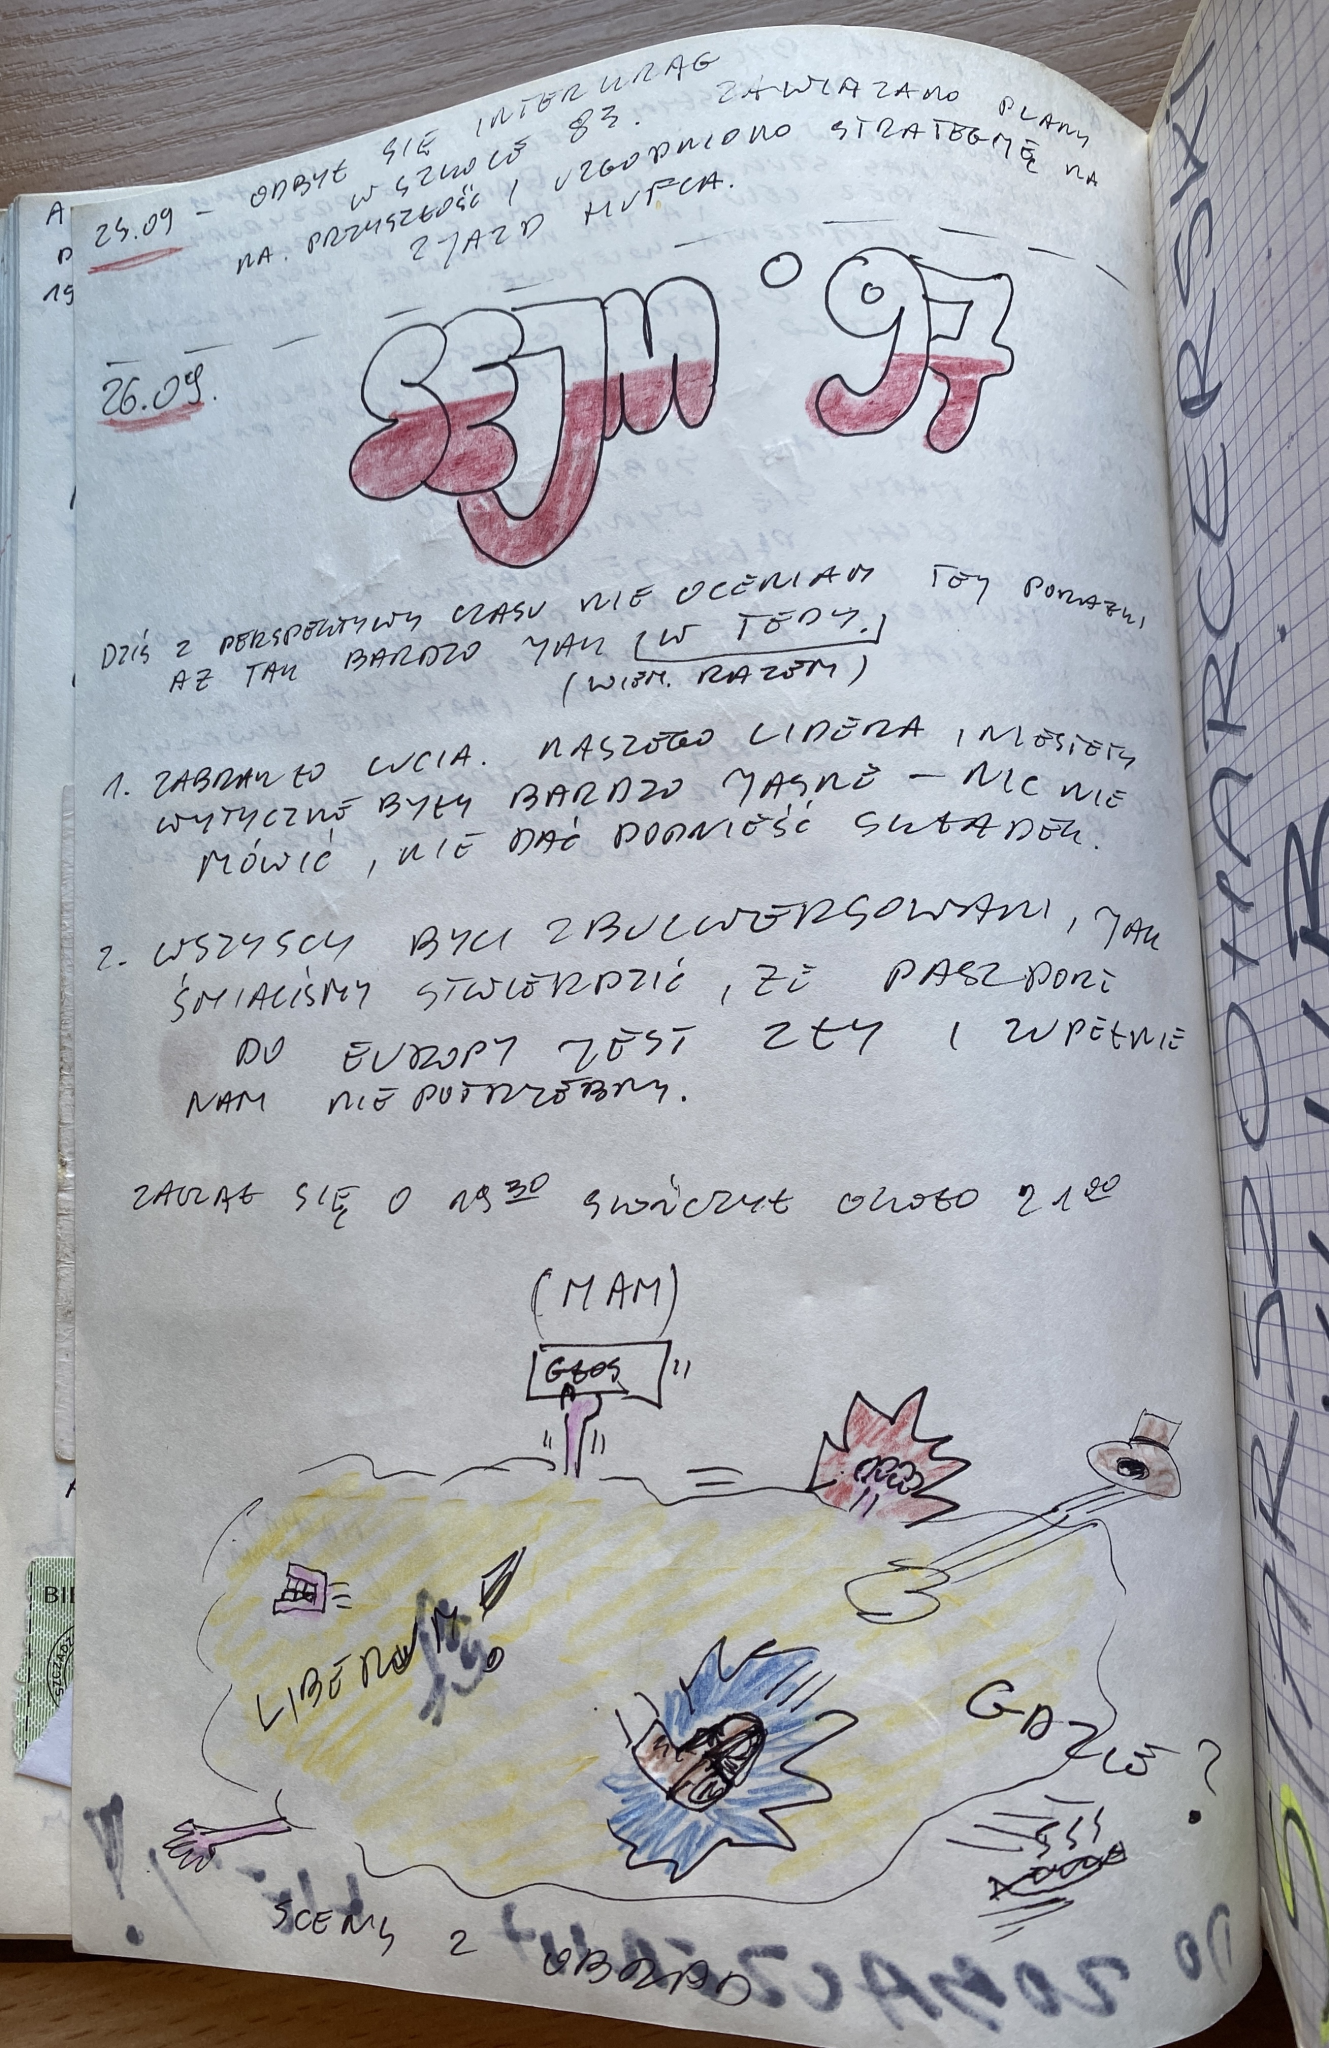 25.09 - ODBYŁ SIĘ INTERKRĄG
W SZKOLE 83. ZAWIĄZANO PLANY
NA. PRZYSZŁOŚĆ I UZGODNIONO STRATEGIĘ NA
ZJAZD HUFCA.
26.09. SEJM '97
DZIŚ Z PERSPEKTYWY CZASU NIE OCENIAM TEJ PORAŻKI
AŻ TAK BARDZO JAK (W TEDY.)
(WIEM. RAZEM)
1. ZABRAKŁO LUCIA. NASZEGO LIDERA, NIESTETY
WYTYCZNE BYŁY BARDZO JASNE - NIC NIE
MÓWIĆ, NIE DAĆ PODNIEŚĆ SKŁADEK.
2. WSZYSCY BYLI ZBULWERSOWANI, JAK
ŚMIALIŚMY STWIERDZIĆ, ŻE PASZPORT
DO EUROPY JEST ZŁY I ZUPEŁNIE
NAM NIEPOTRZEBNY.
ZACZĄŁ SIĘ O 19 30 SKOŃCZYŁ OKOŁO 21 00
(MAM)
GŁOS
LIBERUM
GDZIE?
SCENY Z OBRAD
STARSZOHARCERSKI